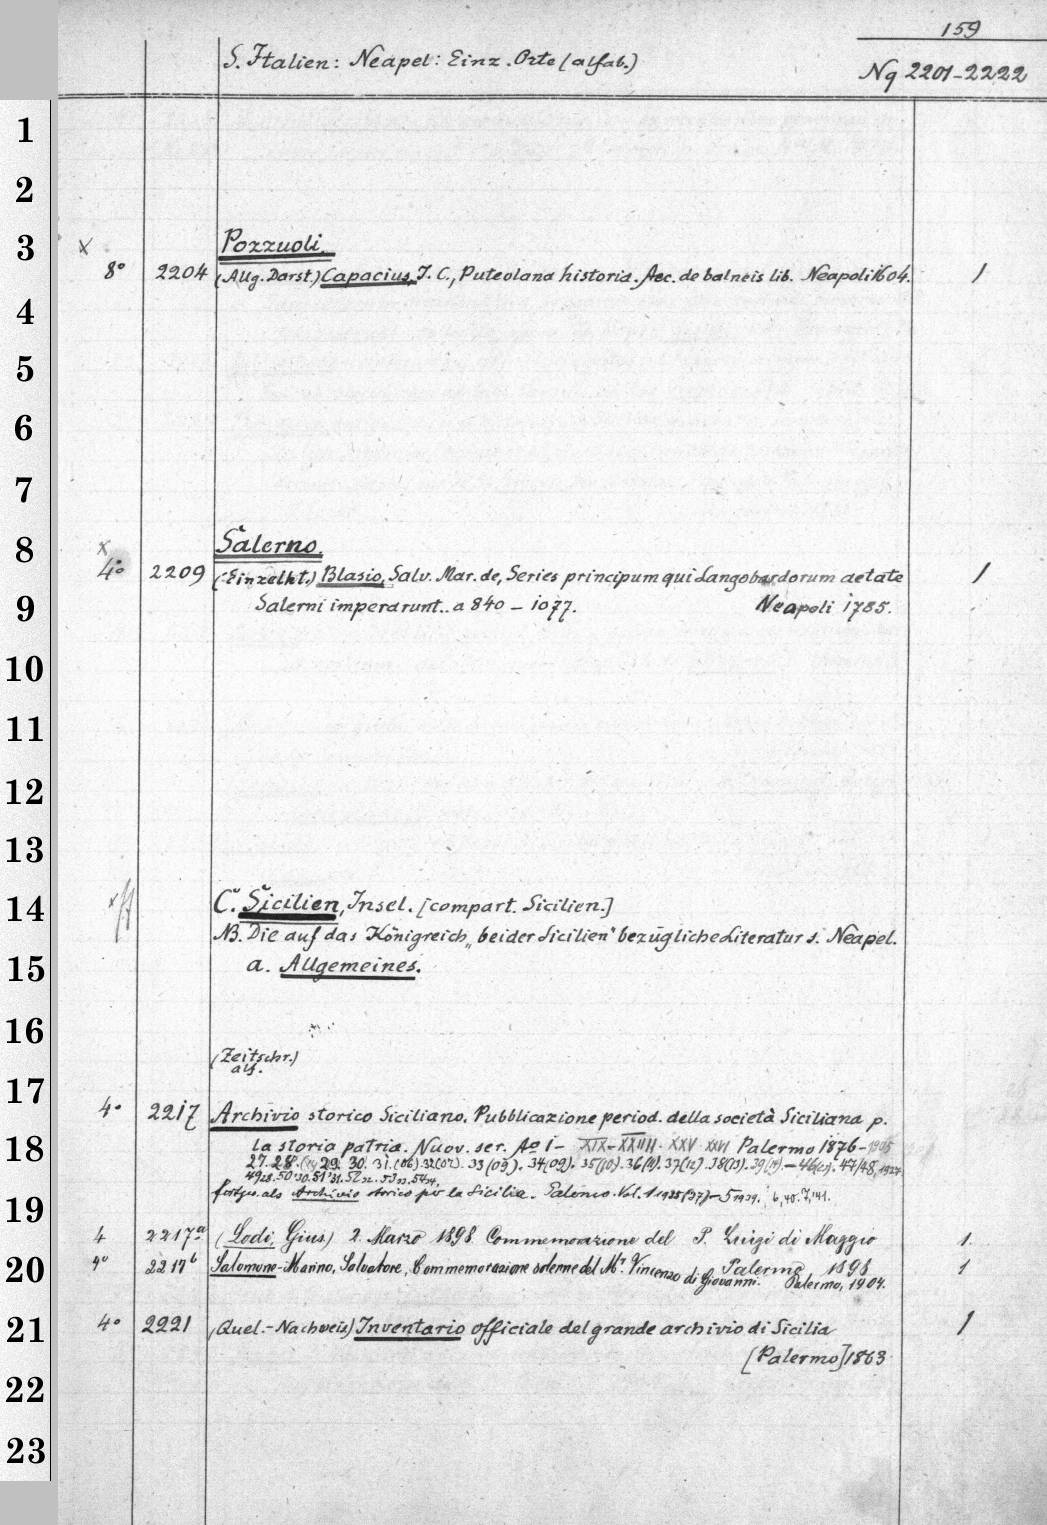 159
S. Italien: Neapel: Einz. Orte (alfab.)
Nq 2201-2222
1
2
3 x Pozzuoli.
8° 2204 (Allg. Darst.) Capacius, J. C., Puteolana historia. Acc. de balneis lib. Neapoli 1604. 1
4
5
6
7
8 x Salerno.
4° 2209 (Einzelht.) Blasio, Salv. Mar. de, Series principum qui Langobardorum aetate 1
9 Salerni imperarunt.. a 840 - 1077. Neapoli 1785.
10
11
12
13
14 x C. Sicilien, Insel. [compart. Sicilien.]
NB. Die auf das Königreich „beider Sicilien" bezügliche Literatur s. Neapel.
15 a. Allgemeines.
16
(Zeitschr.)
alf.
17
4° 2217 Archivio storico Siciliano. Pubblicazione period. della società Siciliana p.
18 la storia patria. Nuov. ser. Ao 1- XIX-XXIIII. XXV XXVI Palermo 1876-1905
27. 28. 29. 30. 31. (06). 32(07). 33 (09). 34(09). 35(10). 36(11). 37(12). 38(13). 39(14).-46(25). 47/48, 1927
49 28. 50 30. 51 31. 52 32. 53 33. 54 34.
19 fortges. als Archivio storico per la Sicilia. Palermo. Vol. 1 1935(37)-5 1939. 6, 40. 7, 41.
4 2217a (Lodi, Gius) 2. Marzo 1898. Commemorazione del P. Luigi di Maggio 1.
Palermo 1898
20 4° 2217b Salomone-Marino, Salvatore, Commemorazione solenne del Mr. Vincenzo di Giovanni. Palermo, 1904. 1
21 4° 2221 (Quel.-Nachweis) Inventario officiale del grande archivio di Sicilia 1
[Palermo] 1863
22
23